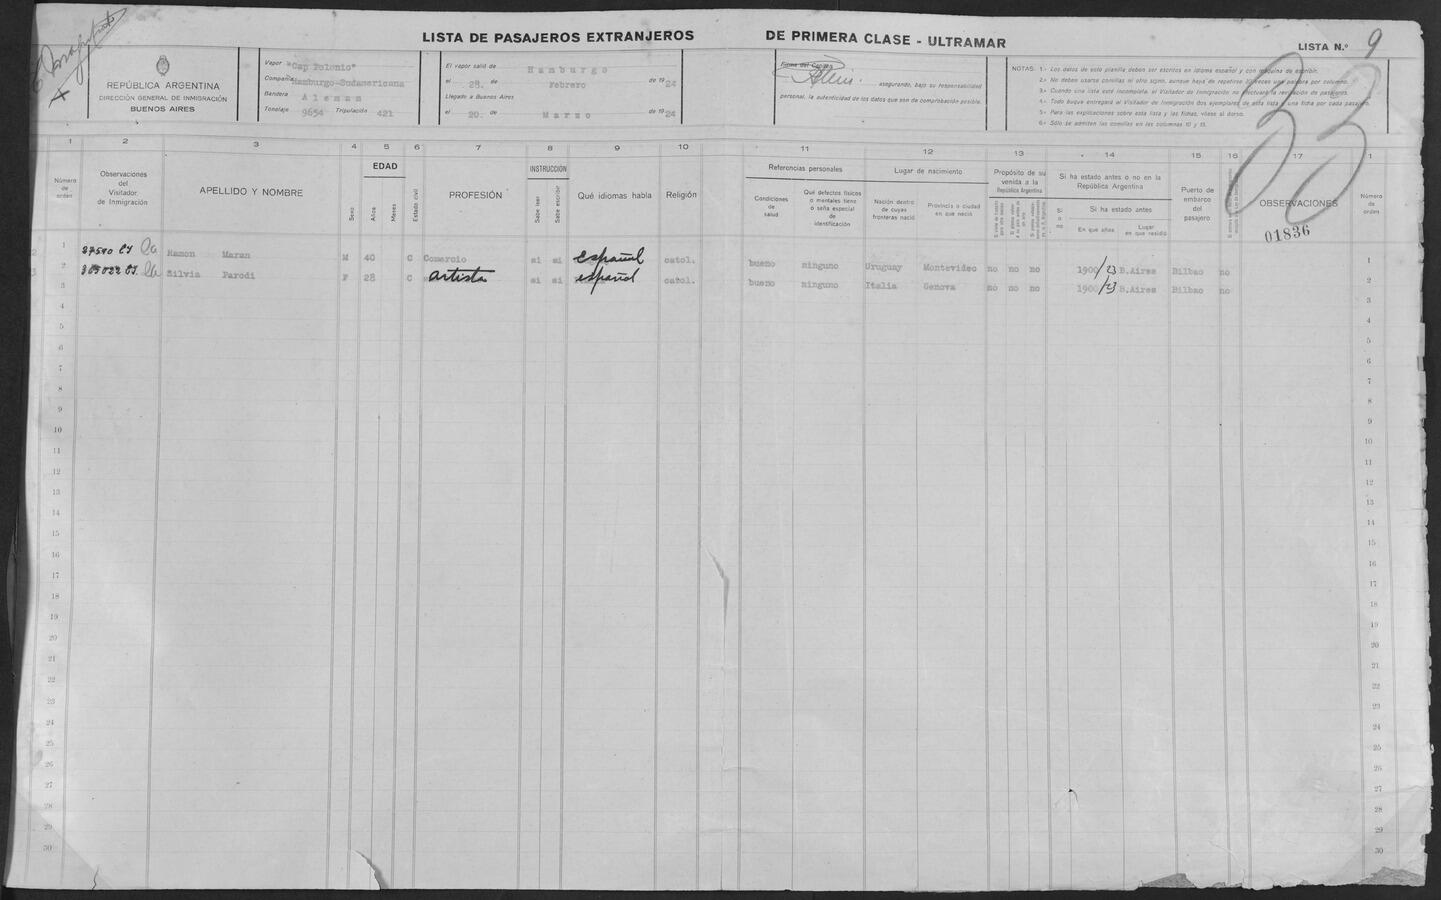 LISTA DE PASAJEROS EXTRANJEROS DE PRIMERA CLASE - ULTRAMAR
LISTA N.º 9
REPÚBLICA ARGENTINA
DIRECCIÓN GENERAL DE INMIGRACIÓN
BUENOS AIRES
Vapor "Cap Polonio"
Compañía Hamburgo-Sudamericana
Bandera Aleman
Tonelaje 9654 Tripulación 421
El vapor salió de Hamburgo
el 28. de Febrero de 1924
Llegado a Buenos Aires
el 20. de Marzo de 1924
Firma del Capitán
asegurando, bajo su responsabilidad
personal, la autenticidad de los datos que son de comprobación posible.
NOTAS: 1.- Los datos de esta planilla deben ser escritos en idioma español y con máquina de escribir.
2.- No deben usarse comillas ni otro signo, aunque haya de repetirse veces una palabra por columna.
3.- Cuando una lista esté incompleta, el Visitador de Inmigración no efectuará la revisación de pasajeros.
4.- Todo buque entregará al Visitador de Inmigración dos ejemplares de esta lista y una ficha por cada pasajero.
5.- Para las explicaciones sobre esta lista y las fichas, véase al dorso.
6.- Sólo se admiten las comillas en las columnas 10 y 15.
1 2 3 4 5 6 7 8 9 10 11 12 13 14 15 16 17 1
Número de orden
Observaciones del Visitador de Inmigración
APELLIDO Y NOMBRE
Sexo
EDAD
Años
Meses
Estado civil
PROFESIÓN
INSTRUCCIÓN
Sabe leer
Sabe escribir
Qué idiomas habla
Religión
Referencias personales
Condiciones de salud
Qué defectos físicos o mentales tiene o seña especial de identificación
Lugar de nacimiento
Nación dentro de cuyas fronteras nació
Provincia o ciudad en que nació
Propósito de su venida a la República Argentina
Si ha estado antes o no en la República Argentina
Sí o no
Si ha estado antes
En que años
Lugar en que residió
Puerto de embarco del pasajero
OBSERVACIONES
01836
Número de orden
Ramon Maran M 40 C Comercio si si español catol. bueno ninguno Uruguay Montevideo no no no 1900/23 B.Aires Bilbao no
Silvia Parodi F 28 C artista si si español catol. bueno ninguno Italia Genova no no no 1900/23 B.Aires Bilbao no
1 1
2 2
3 3
4 4
5 5
6 6
7 7
8 8
9 9
10 10
11 11
12 12
13 13
14 14
15 15
16 16
17 17
18 18
19 19
20 20
21 21
22 22
23 23
24 24
25 25
26 26
27 27
28 28
29 29
30 30